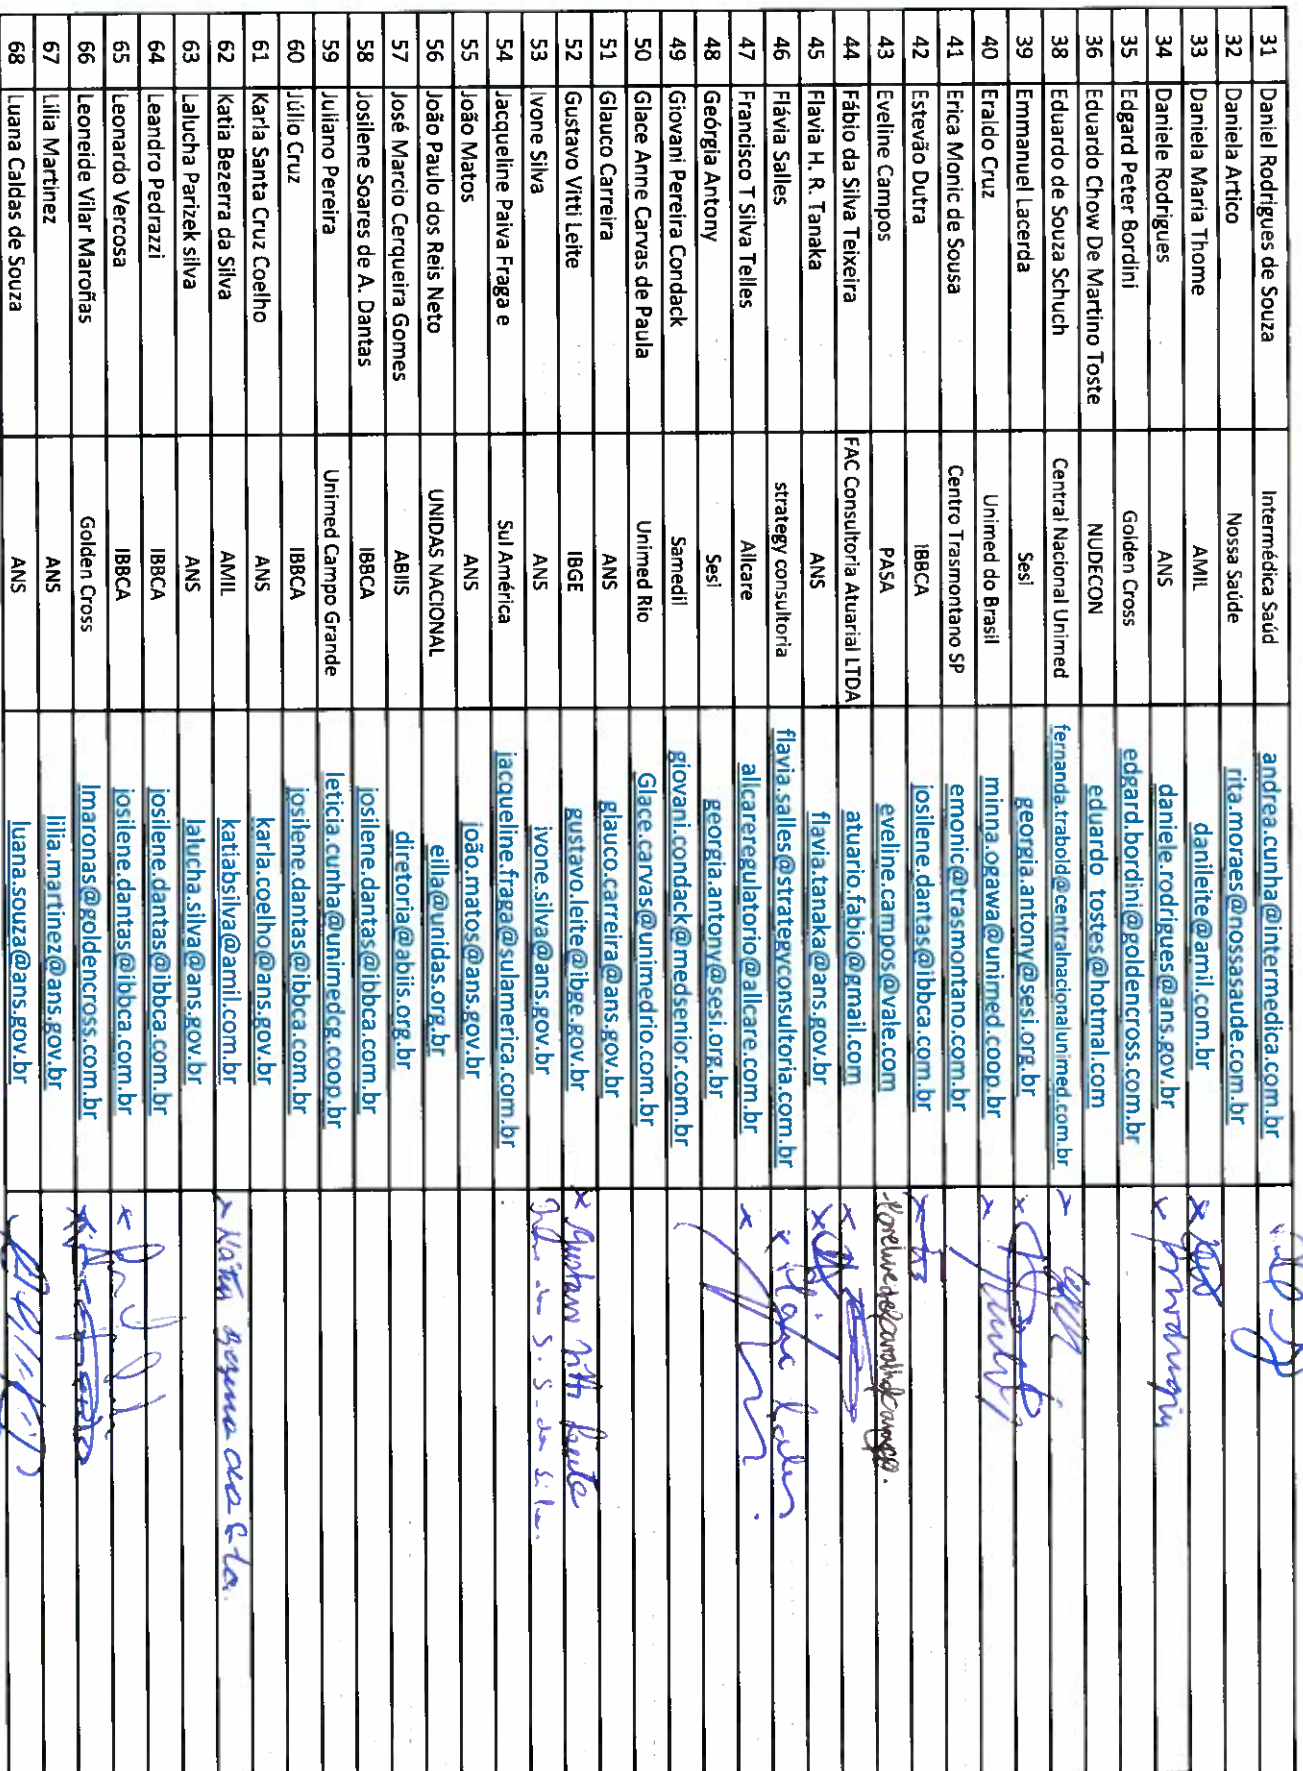 31 Daniel Rodrigues de Souza Intermédica Saúd andrea.cunha@intermedica.com.br
32 Daniela Artico Nossa Saúde rita.moraes@nossasaude.com.br
33 Daniela Maria Thome AMIL danileite@amil.com.br
34 Daniele Rodrigues ANS daniele.rodrigues@ans.gov.br
35 Edgard Peter Bordini Golden Cross edgard.bordini@goldencross.com.br
36 Eduardo Chow De Martino Toste NUDECON eduardo_tostes@hotmal.com
38 Eduardo de Souza Schuch Central Nacional Unimed fernanda.trabold@centralnacionalunimed.com.br
39 Emmanuel Lacerda Sesi georgia.antony@sesi.org.br
40 Eraldo Cruz Unimed do Brasil minna.ogawa@unimed.coop.br
41 Erica Monic de Sousa Centro Trasmontano SP emonic@trasmontano.com.br
42 Estevão Dutra IBBCA josilene.dantas@ibbca.com.br
43 Eveline Campos PASA eveline.campos@vale.com
44 Fábio da Silva Teixeira FAC Consultoria Atuarial LTDA atuario.fabio@gmail.com
45 Flavia H. R. Tanaka ANS flavia.tanaka@ans.gov.br
46 Flávia Salles strategy consultoria flavia.salles@strategyconsultoria.com.br
47 Francisco T Silva Telles Allcare allcareregulatorio@allcare.com.br
48 Geórgia Antony Sesi georgia.antony@sesi.org.br
49 Giovani Pereira Condack Samedil giovani.condack@medsenior.com.br
50 Glace Anne Carvas de Paula Unimed Rio Glace.carvas@unimedrio.com.br
51 Glauco Carreira ANS glauco.carreira@ans.gov.br
52 Gustavo Vitti Leite IBGE gustavo.leite@ibge.gov.br x Gustavo Vitti Leite
53 Ivone Silva ANS ivone.silva@ans.gov.br
54 Jacqueline Paiva Fraga e Sul América jacqueline.fraga@sulamerica.com.br
55 João Matos ANS joão.matos@ans.gov.br
56 João Paulo dos Reis Neto UNIDAS NACIONAL eilla@unidas.org.br
57 José Marcio Cerqueira Gomes ABIIS diretoria@abiis.org.br
58 Josilene Soares de A. Dantas IBBCA josilene.dantas@ibbca.com.br
59 Juliano Pereira Unimed Campo Grande leticia.cunha@unimedcg.coop.br
60 Júlio Cruz IBBCA josilene.dantas@ibbca.com.br
61 Karla Santa Cruz Coelho ANS karla.coelho@ans.gov.br
62 Katia Bezerra da Silva AMIL katiabsilva@amil.com.br x Katia Bezerra da Silva
63 Lalucha Parizek silva ANS lalucha.silva@ans.gov.br
64 Leandro Pedrazzi IBBCA josilene.dantas@ibbca.com.br
65 Leonardo Vercosa IBBCA josilene.dantas@ibbca.com.br
66 Leoneide Vilar Maroñas Golden Cross lmaronas@goldencross.com.br
67 Lilia Martinez ANS lilia.martinez@ans.gov.br
68 Luana Caldas de Souza ANS luana.souza@ans.gov.br